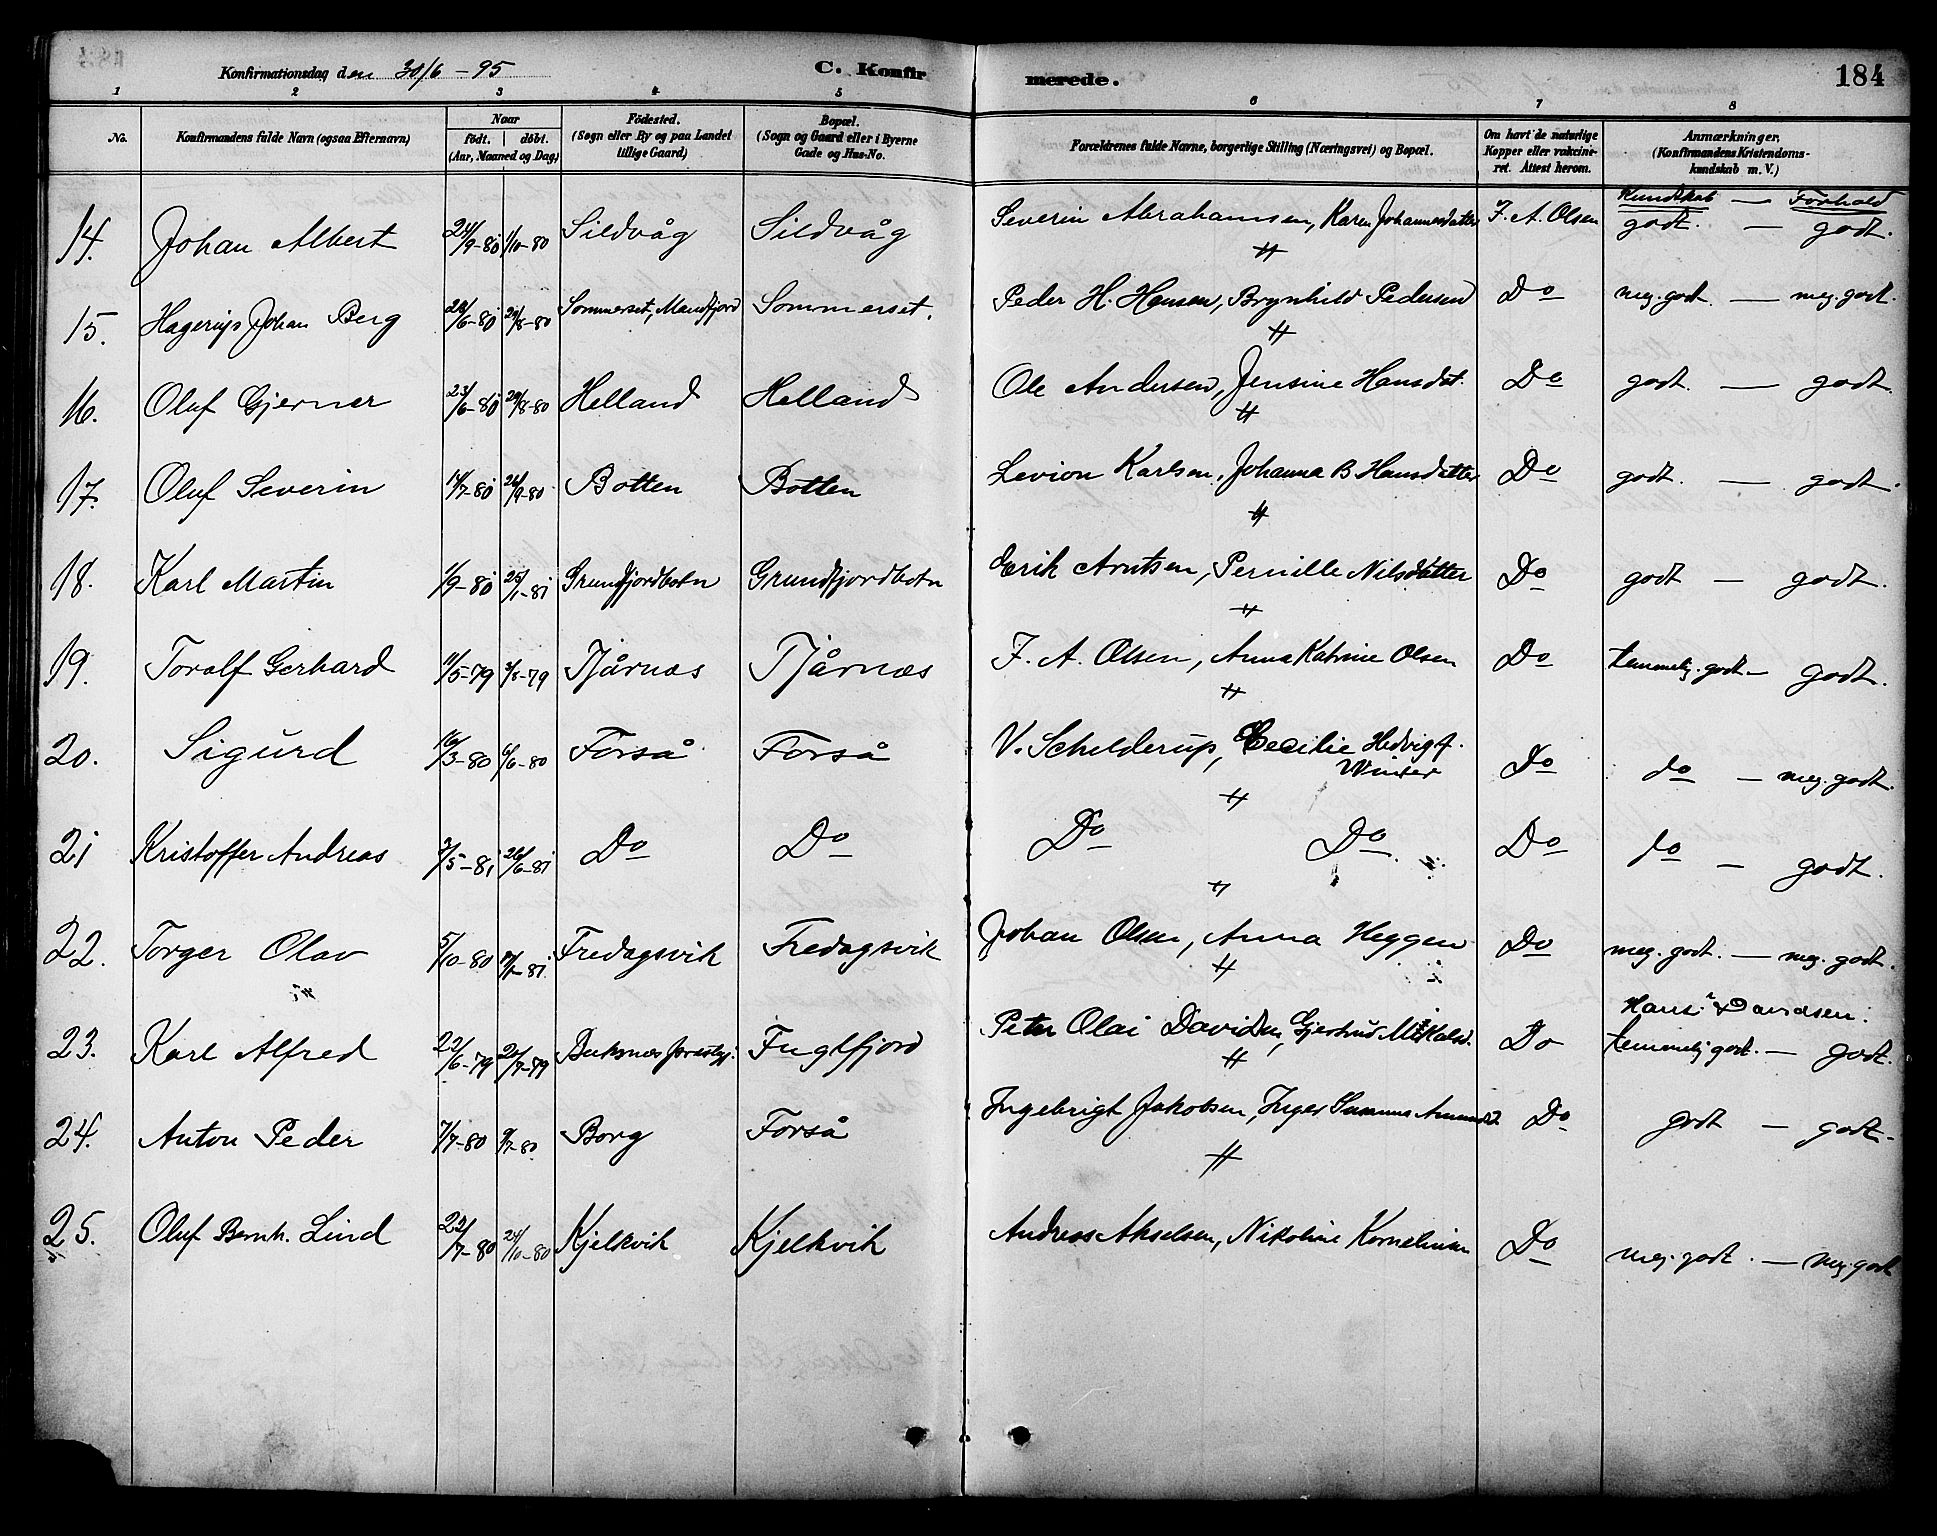 Konfirmationsdag den 30/6 - 95 C. Konfir merede. 184
1 2 3 4 5 6 7 8
No. Konfirmandens fulde Navn (ogsaa Efternavn) Naar födt. döbt. (Aar, Maaned og Dag) Födested. (Sogn eller By og paa Landet tillige Gaard) Bopæl. (Sogn og Gaard eller i Byerne Gade og Hus-No. Forældrenes fulde Navne, borgerlige Stilling (Næringsvei) og Bopæl. Om havt de naturlige Kopper eller vakcineret. Attest herom. Anmærkninger. (Konfirmandens Kristendomskundskab m. V.)
Kundskab — Forhold
14. Johan Albert 24/9-80 1/10-80 Sildvåg Sildvåg Severin Abrahamsen, Karen Johannesdatter F. A. Olsen godt. — godt.
15. Johan Berg 29/8-80 Sommerset, Mandfjord Sommerset. Peder H. Hansen, Brynhild Pedersen Do meg. godt. — meg. godt.
16. Oluf Gjerner 23/6-80 29/8-80 Helland Helland Ole Andersen, Jensine Hansdat. Do godt. — godt.
17. Oluf Severin 14/7-80 26/9-80 Botten Botten Levion Karlsen, Johanna B Hansdatter Do godt. — godt.
18. Karl Martin 1/9-80 25/1-81 Grundfjordbotn Grundfjordbotn Erik Arntsen, Pernille Nilsdatter Do godt — godt.
19. Toralf Gerhard 11/5-79 3/8-79 Tjårnæs Tjårnæs F. A. Olsen, Anna Katrine Olsen Do temmelig. godt — godt.
20. Sigurd 16/3-80 6/6-80 Forså Forså V. Schelderup, Cecilie Hedvig f.
Winter Do do — meg. godt.
21 Kristoffer Andreas 26/6-81 Do Do Do Do. Do do — godt.
22. Torger Olav 5/10-80 Fredagsvik Fredagsvik Johan Olsen, Anna Heggen Do meg. godt. — meg. godt.
Hans Davidsen.
23. Karl Alfred 22/6-79 20/7-79 Buksnæs Fuglfjord Peter Olai Davidsen, Gjertrud Do temmelig godt. — godt.
24. Anton Peder 7/7-80 9/7-80 Borg Forså Ingebrigt Jakobsen, Inger Do godt — godt.
25. Oluf Bernh. Lind 22/7-80 24/10-80 Kjelkvik Kjelkvik Andreas Akselsen, Nikoline Do meg. godt. — meg. godt